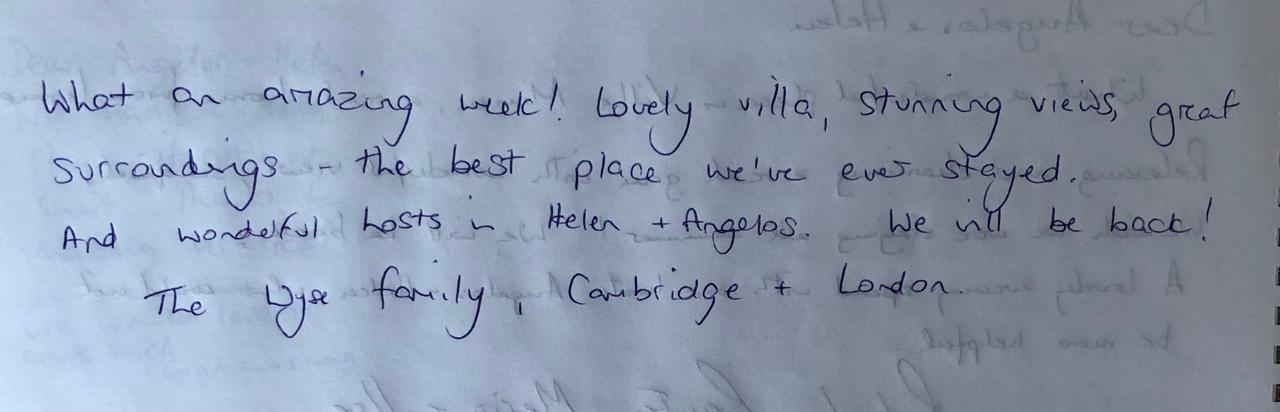 What an amazing week! Lovely villa, stunning views, great
surroundings - the best place we've ever stayed.
And wonderful hosts in Helen + Angelos. We will be back!
The Wyse family, Cambridge + London.